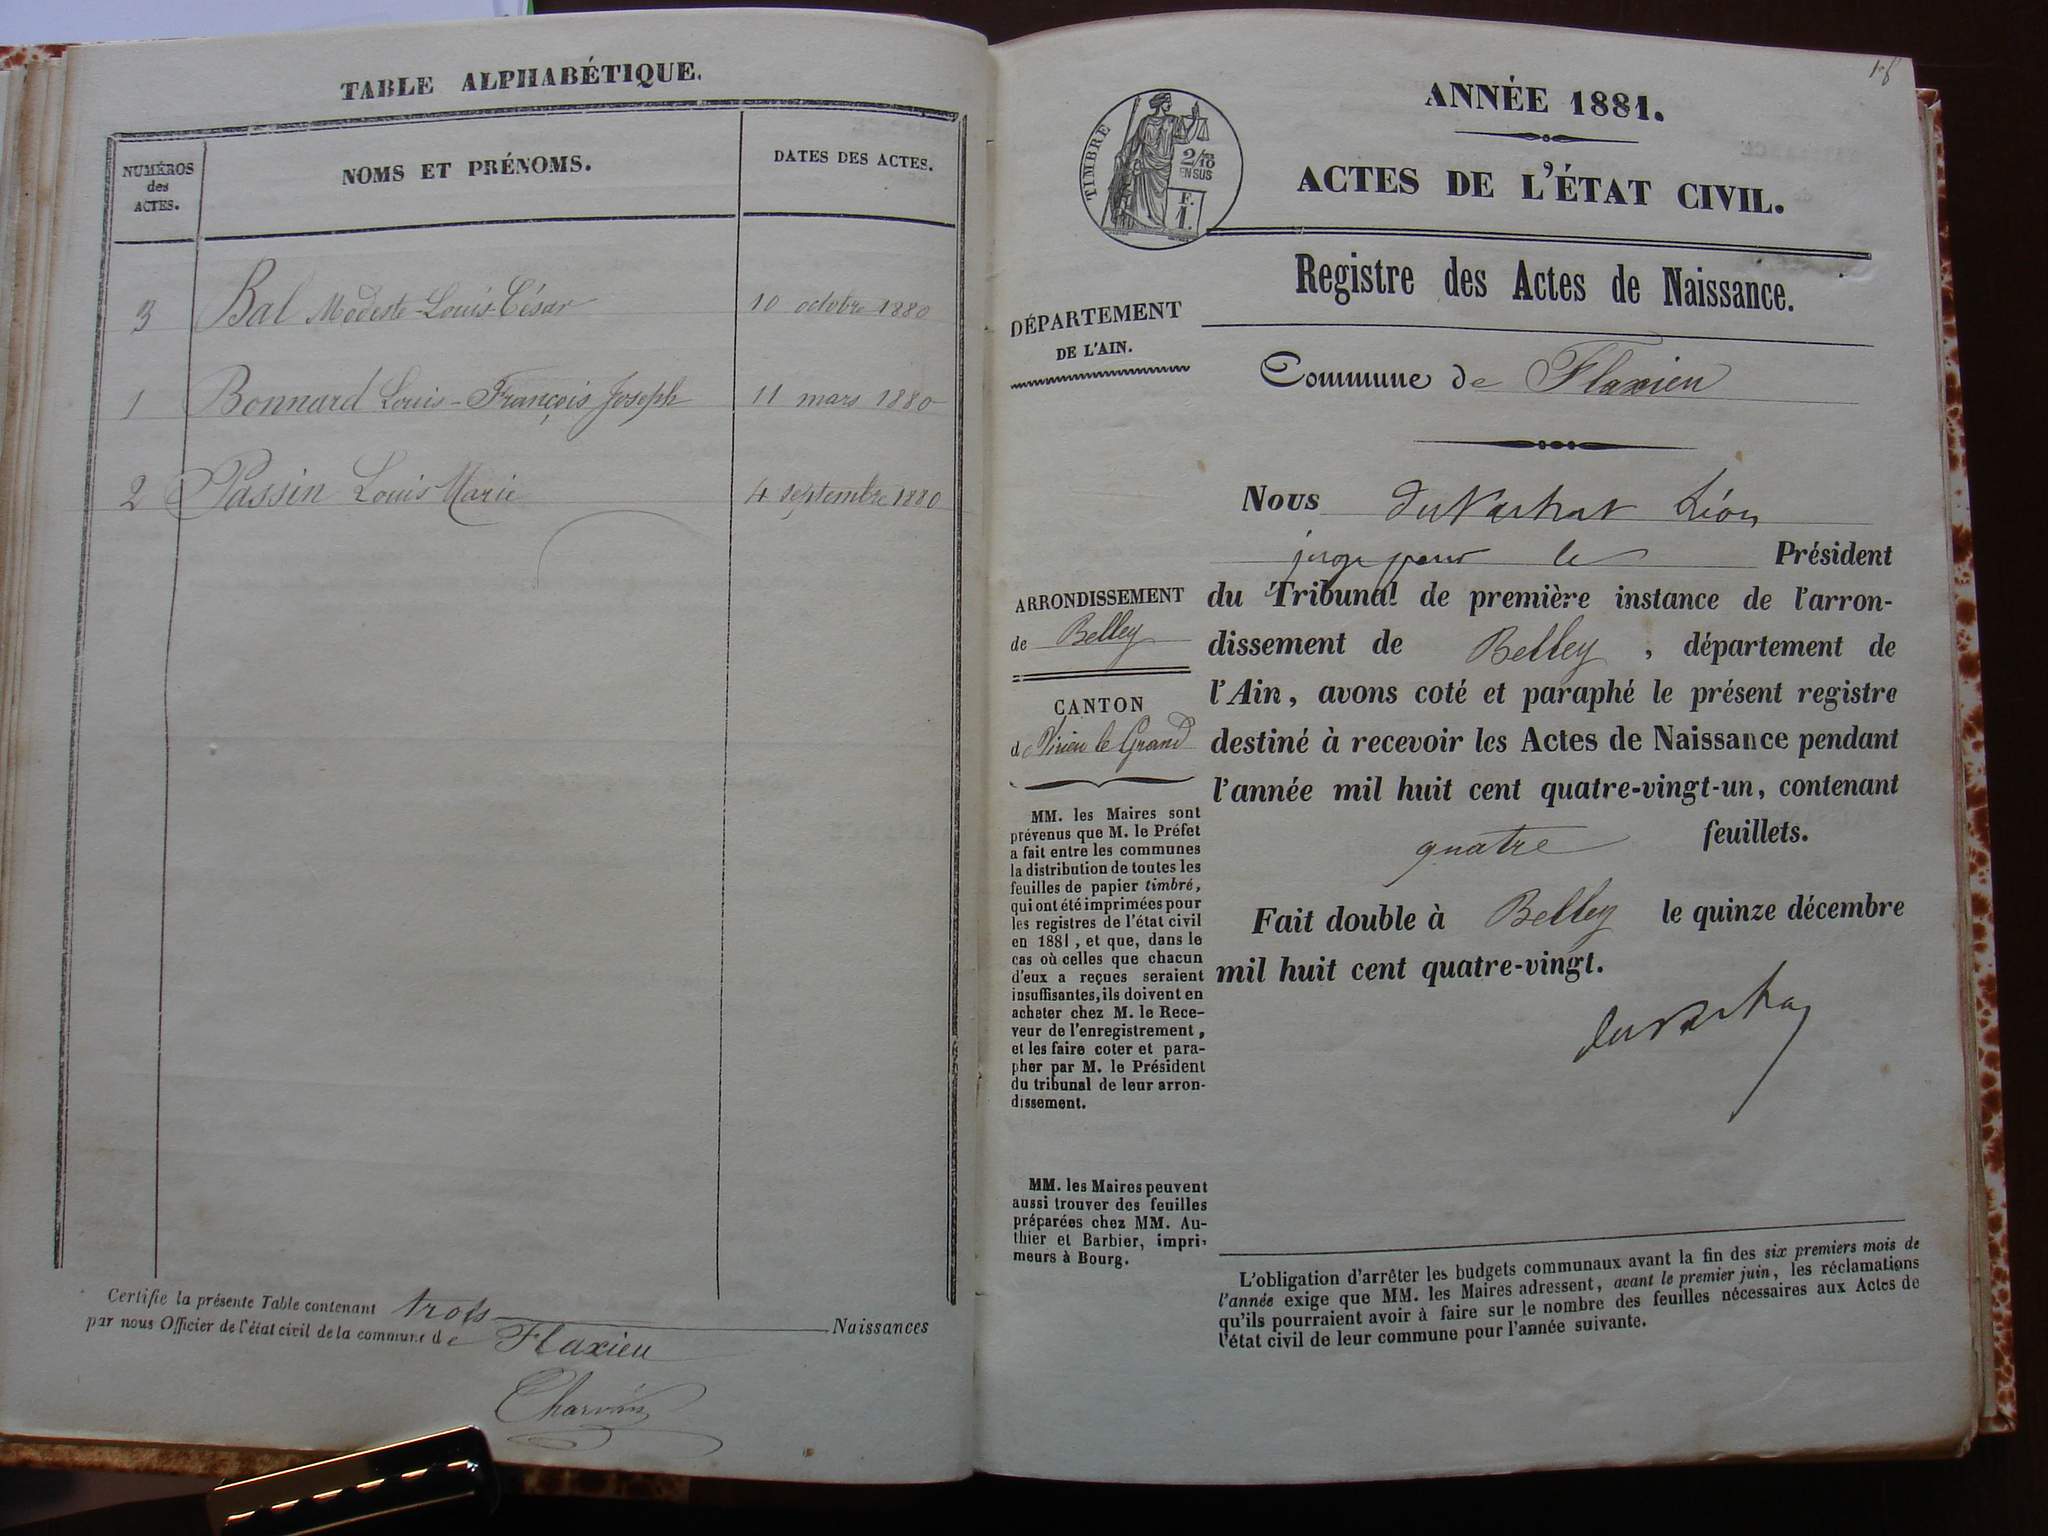 TABLE ALPHABÉTIQUE.
NUMÉROS des ACTES.
NOMS ET PRÉNOMS.
DATES DES ACTES.
3 Bal Modeste-Louis-César 10 octobre 1880
1 Bonnard Louis-François Joseph 11 mars 1880
2 Passin Louis Marie 4 septembre 1880
Certifie la présente Table contenant trois Naissances
par nous Officier de l'état civil de la commune de Flaxieu
ANNÉE 1881.
TIMBRE
2/10 EN SUS
F. 1.
ACTES DE L'ÉTAT CIVIL.
Registre des Actes de Naissance.
DÉPARTEMENT
DE L'AIN.
Commune de Flaxieu
ARRONDISSEMENT
de Belley
CANTON
de Virieu le Grand
MM. les Maires sont
prévenus que M. le Préfet
a fait entre les communes
la distribution de toutes les
feuilles de papier timbré,
qui ont été imprimées pour
les registres de l'état civil
en 1881, et que, dans le
cas où celles que chacun
d'eux a reçues seraient
insuffisantes, ils doivent en
acheter chez M. le Rece-
veur de l'enregistrement,
et les faire coter et para-
pher par M. le Président
du tribunal de leur arron-
dissement.
MM. les Maires peuvent
aussi trouver des feuilles
préparées chez MM. Au-
thier et Barbier, impri-
meurs à Bourg.
Nous Léon
juge pour le Président
du Tribunal de première instance de l'arron-
dissement de Belley, département de
l'Ain, avons coté et paraphé le présent registre
destiné à recevoir les Actes de Naissance pendant
l'année mil huit cent quatre-vingt-un, contenant
quatre feuillets.
Fait double à Belley le quinze décembre
mil huit cent quatre-vingt.
L'obligation d'arrêter les budgets communaux avant la fin des six premiers mois de
l'année exige que MM. les Maires adressent, avant le premier juin, les réclamations
qu'ils pourraient avoir à faire sur le nombre des feuilles nécessaires aux Actes de
l'état civil de leur commune pour l'année suivante.